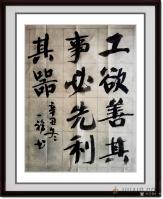 工欲善其
事必先利
其器
辛丑冬